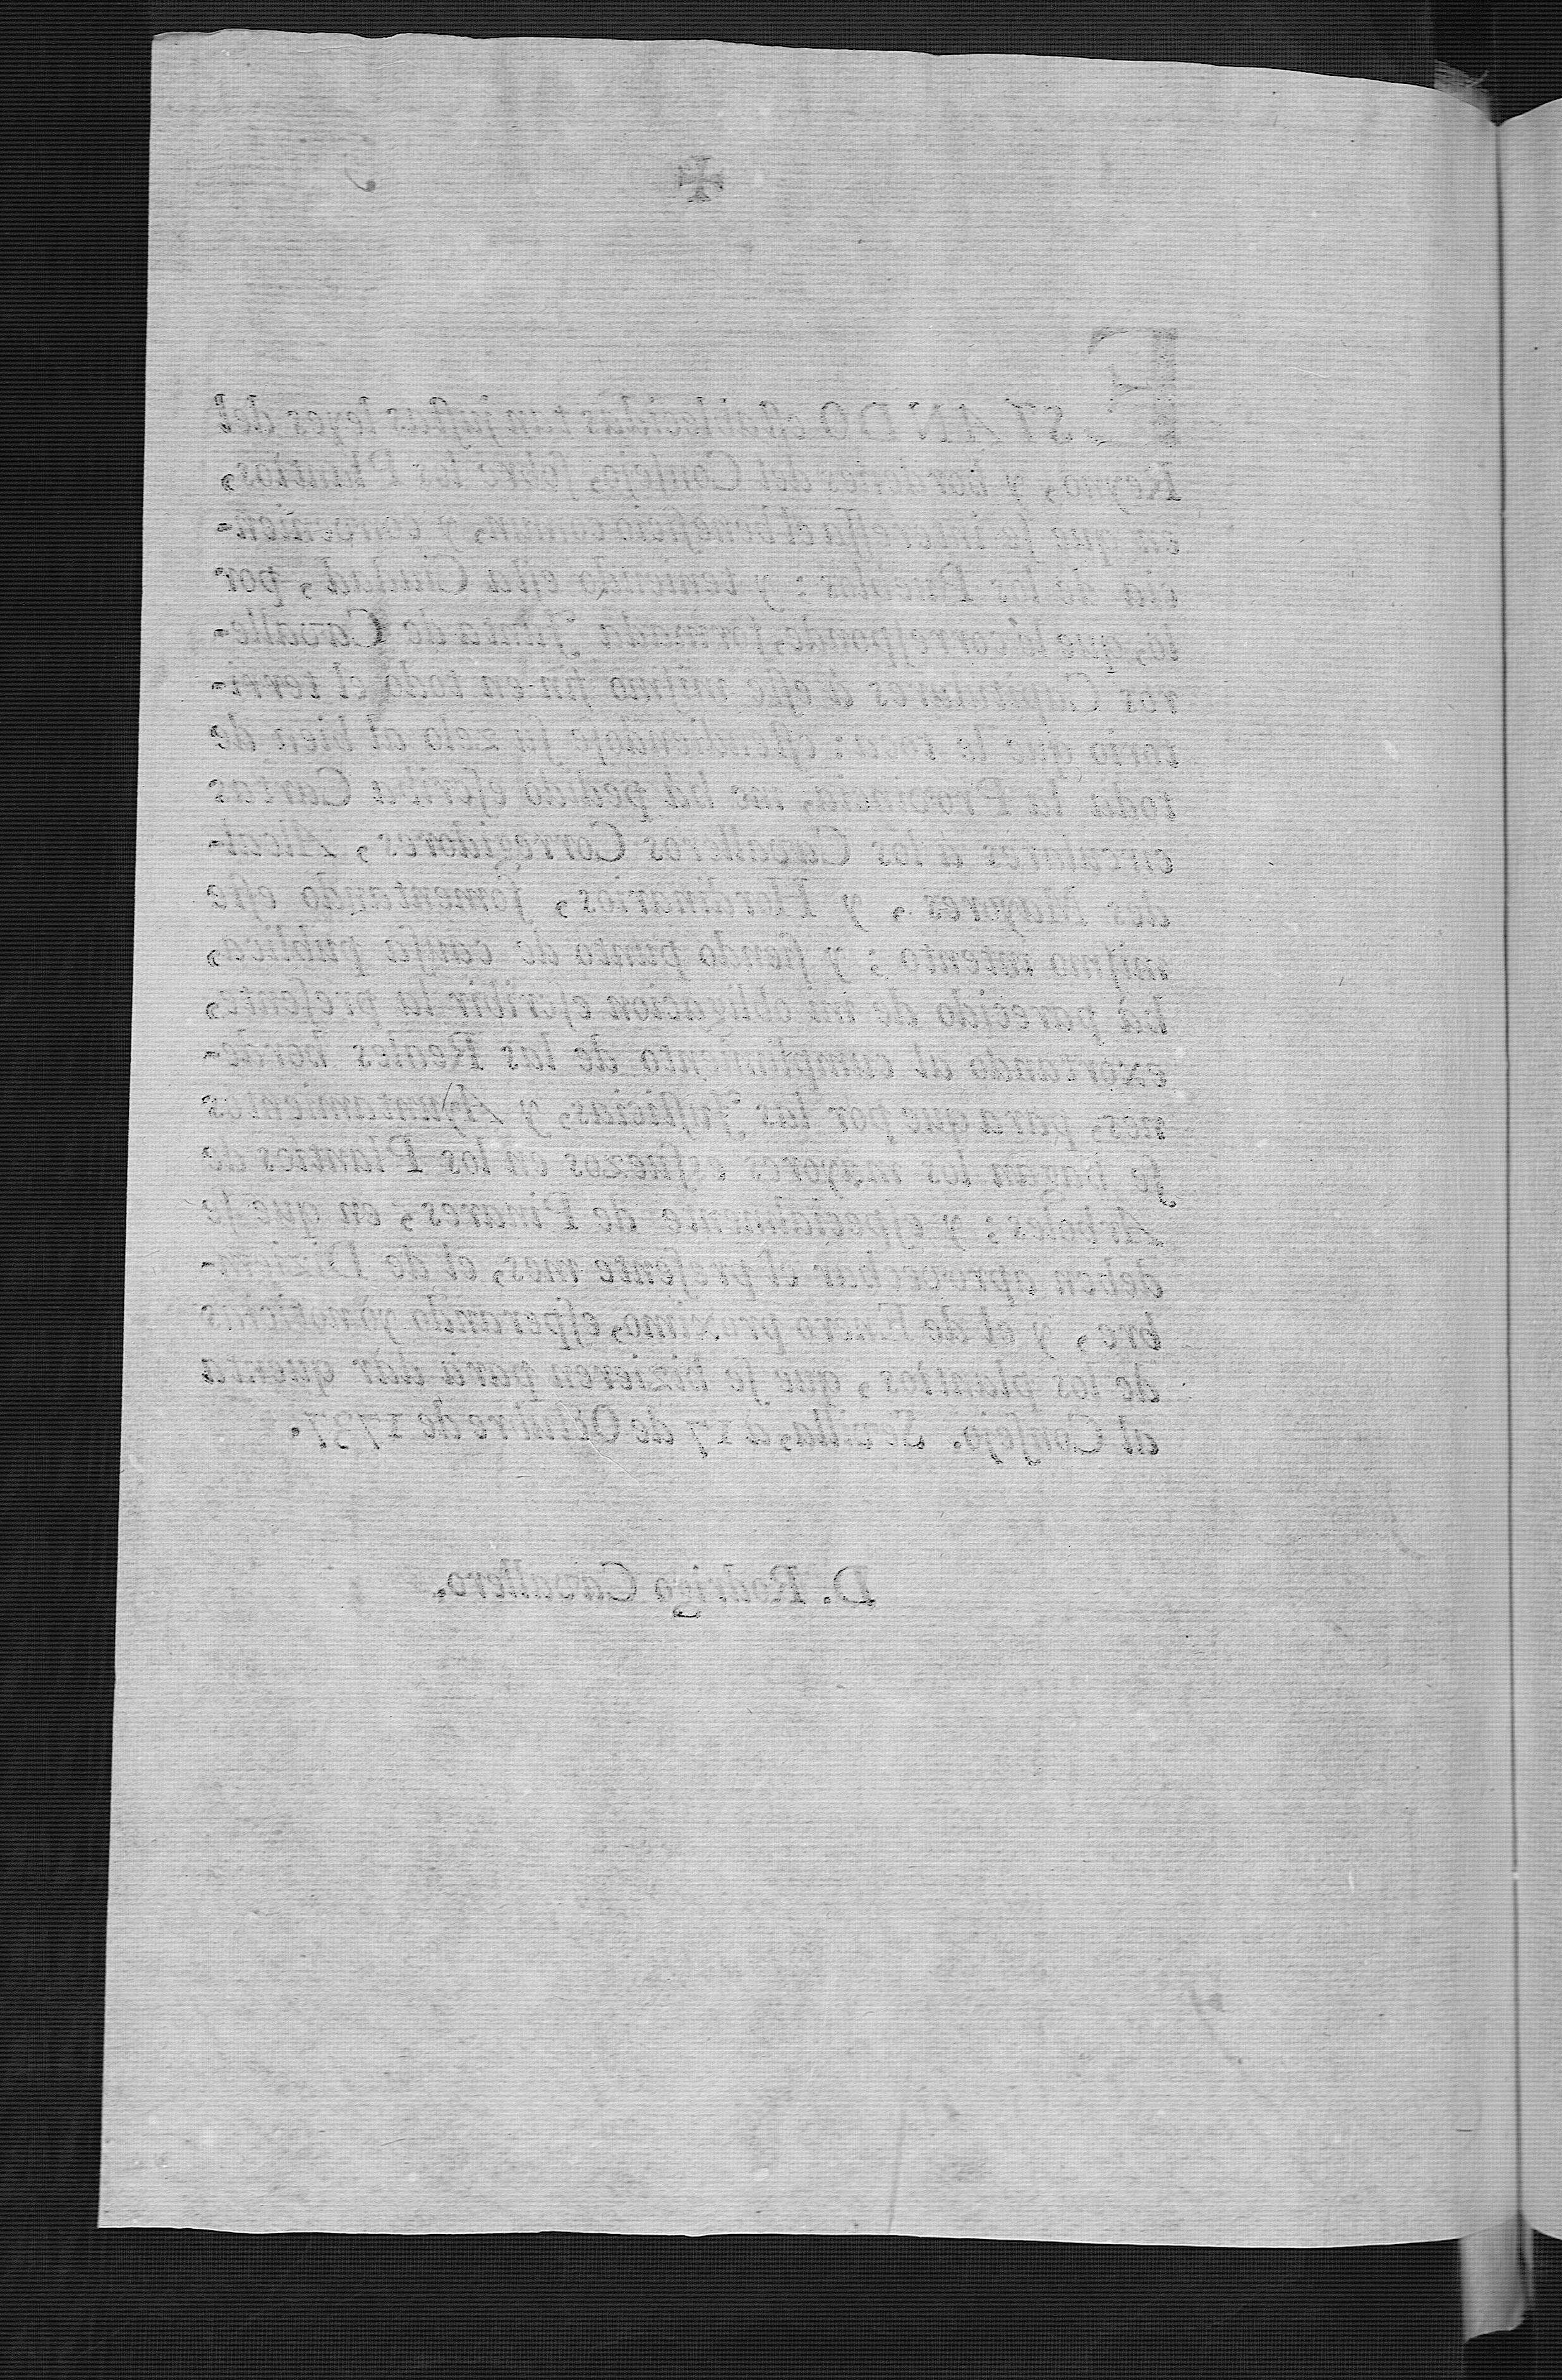 ✠
ESTANDO eſtablecidas tan juſtas leyes del
Reyno, y hordenes del Conſejo, ſobre los Plantios,
en que ſe intereſſa el beneficio comun, y convenien-
cia de los Pueblos: y teniendo eſta Ciudad, por
lo que le correſponde, formada Junta de Cavalle-
ros Capitulares à eſte miſmo fin en todo el terri-
torio que le toca: eſtendiendoſe ſu zelo al bien de
toda la Provincia, me hà pedido eſcriba Cartas
circulares à los Cavalleros Corregidores, Alcal-
des Mayores, y Hordinarios, fomentando eſte
miſmo intento: y ſiendo punto de cauſa publica,
hà parecido de mi obligacion eſcribir la preſente,
exortando al cumplimiento de las Reales horde-
nes, para que por las Juſticias, y Ayuntamientos
ſe hagan los mayores esfuezos en los Plantios de
Arboles; y eſpecialmente de Pinares, en que ſe
deben aprovechar el preſente mes, el de Diziem-
bre, y el de Enero proximo, eſperando yo noticias
de los plantios, que ſe hizieren para dar quenta
al Conſejo. Sevilla, à 17 de Octubre de 1737.
D. Rodrigo Cavallero.